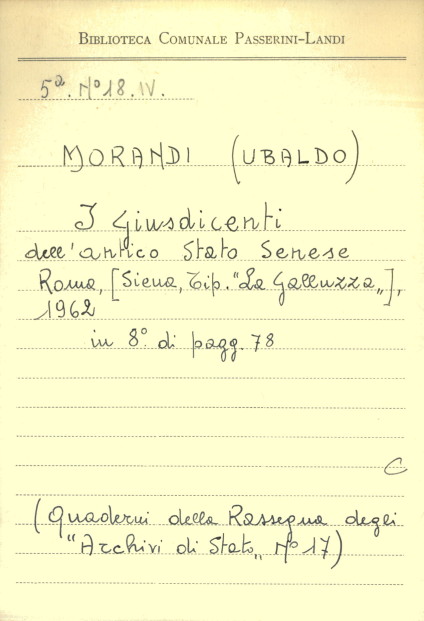 BIBLIOTECA COMUNALE PASSERINI-LANDI
5ª. Nº 18. IV.
MORANDI (UBALDO)
I Giusdicenti
dell'antico Stato Senese
Roma, [Siena, Tip. "La Galluzza„],
1962
in 8º di pagg. 78
C
(Quaderni della Rassegna degli
"Archivi di Stato„ Nº 17)